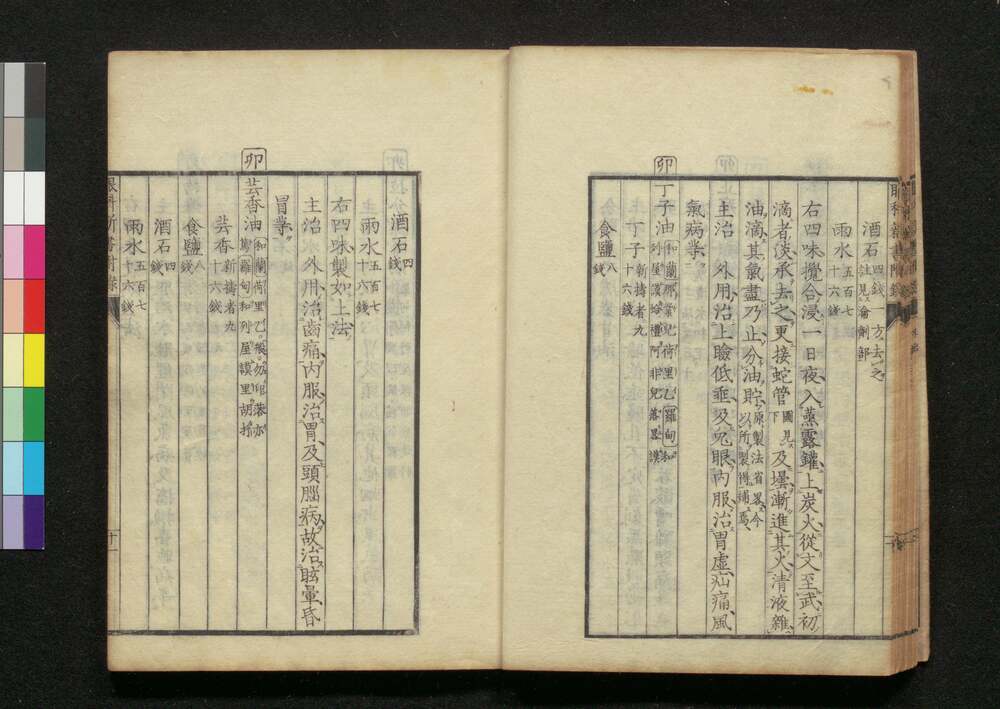 酒石四錢一方去之註見侖劑部
雨水五百七十六錢
右四味攪合浸一日夜入蒸露鑵上炭火從文至武初
滴者淡承去之更接蛇管圖見下及壜漸進其火清液雖
油滴其氣盡乃止分油貯原製法省略今以所製得補焉
主治 外用治上瞼低垂及兔眼內服治胃虛疝痛風
氣病等
卯
丁子油
丁子新擣者九十六錢
食鹽八錢
酒石四錢
雨水五百七十六錢
右四味製如上法
主治 外用治齒痛內服治胃及頭腦病故治眩暈昏
冒等
卯
芸香油
芸香新擣者九十六錢
食鹽八錢
酒石四錢
雨水五百七十六錢
眼科新書附錄
十一